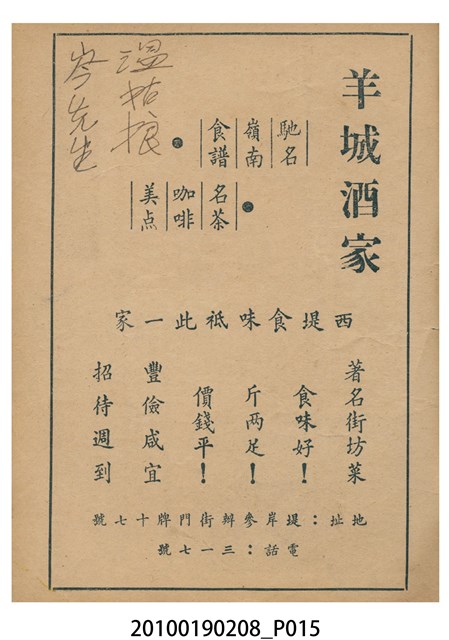 羊城酒家
馳名
嶺南
食譜
名茶
咖啡
美点
溫姑娘
岑先生
西堤食味祗此一家
著名街坊菜
食味好！
斤两足！
價錢平！
豐儉咸宜
招待週到
地址：堤岸參辦街門牌十七號
電話：三一七號
20100190208_P015